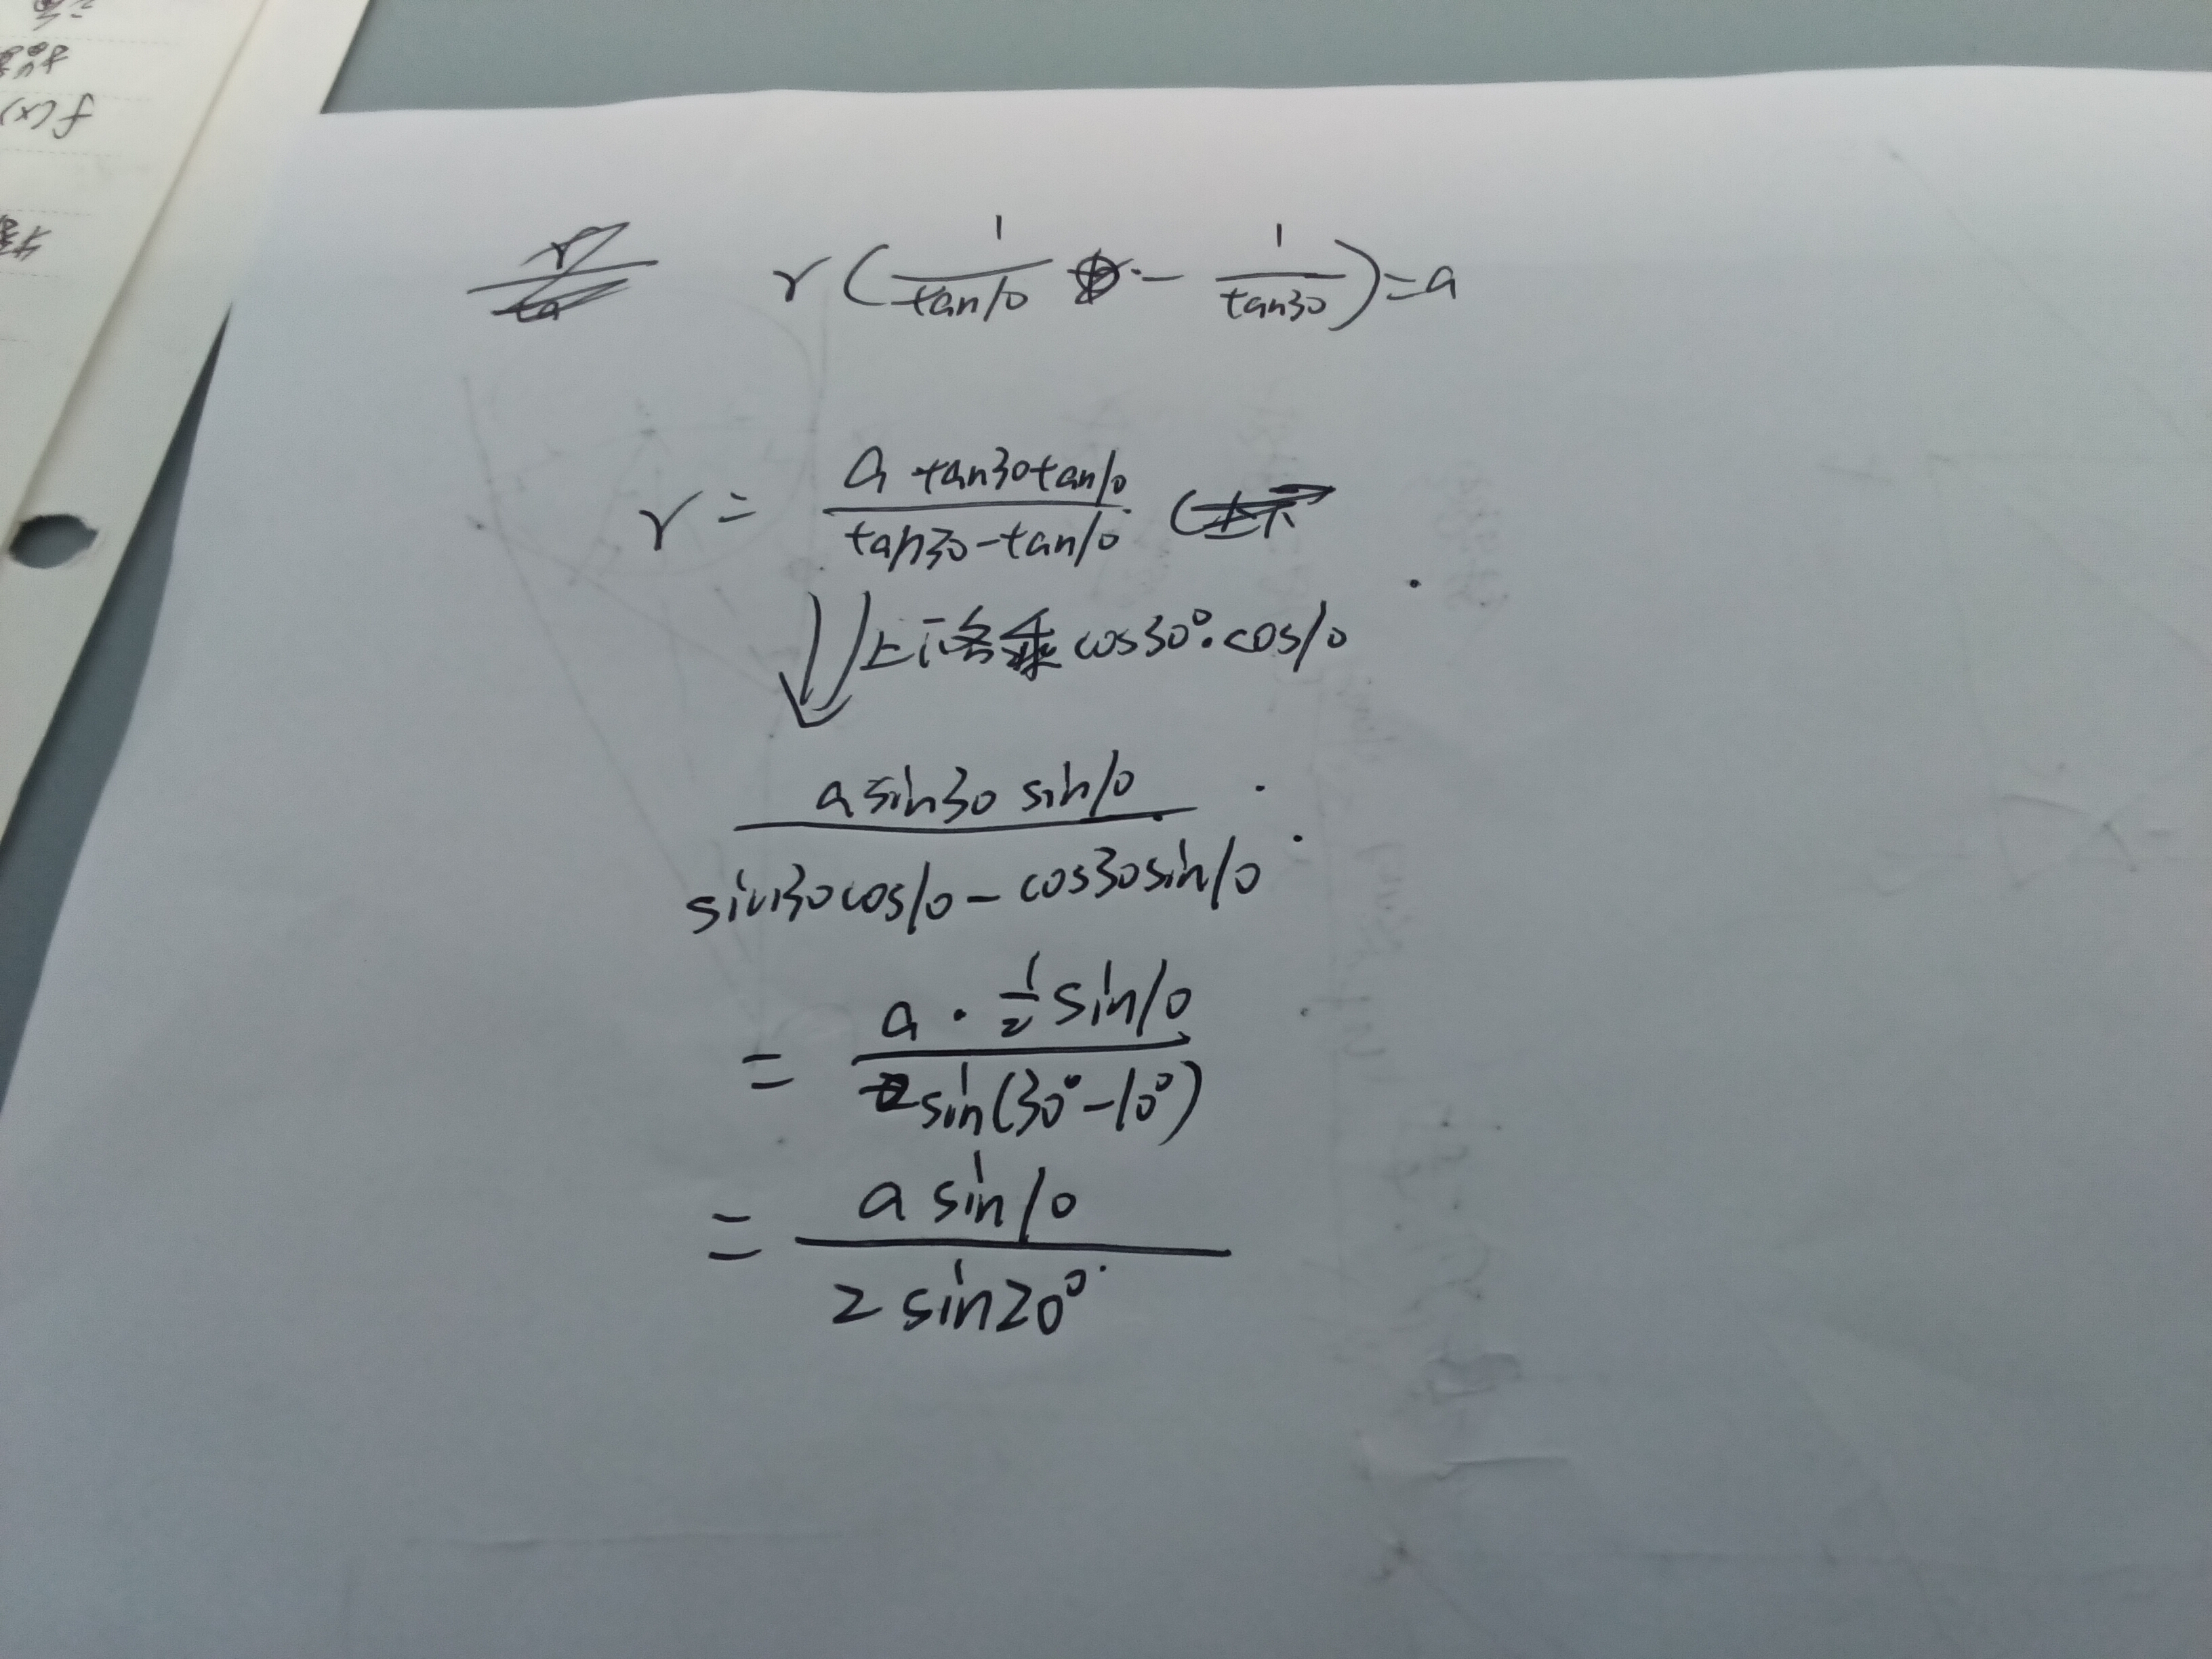 f(x)
r(1/tan10 - 1/tan30)=a
r = a tan30tan10 / tan30-tan10
上下各乘cos30°·cos10
a sin30 sin10 / sin30cos10-cos30sin10
= a·1/2 sin10 / sin(30°-10°)
= a sin10 / 2 sin20°